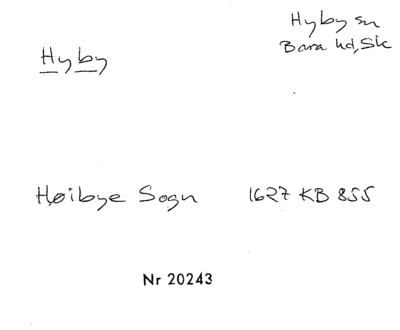 Hyby
Hyby sn
Bara hd, Sk
Høibye Sogn 1627 KB 855
Nr 20243